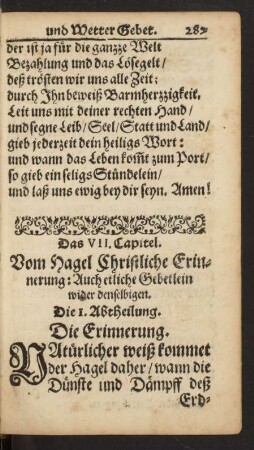 und Wetter Gebet. 285
der ist ja für die gantze Welt
Bezahlung und das Lösegelt/
deß trösten wir uns alle Zeit;
durch Ihn beweiß Barmhertzigkeit.
Leit uns mit deiner rechten Hand/
und segne Leib/ Seel/ Statt und Land/
gieb jederzeit dein heiligs Wort:
und wann das Leben kom̃t zum Port/
so gieb ein seligs Stündelein/
und laß uns ewig bey dir seyn. Amen!
Das VII. Capitel.
Vom Hagel Christliche Erin-
nerung: Auch etliche Gebetlein
wider denselbigen.
Die 1. Abtheilung.
Die Erinnerung.
NAtürlicher weiß kommet
der Hagel daher/ wann die
Dünste und Dämpff deß
Erd-